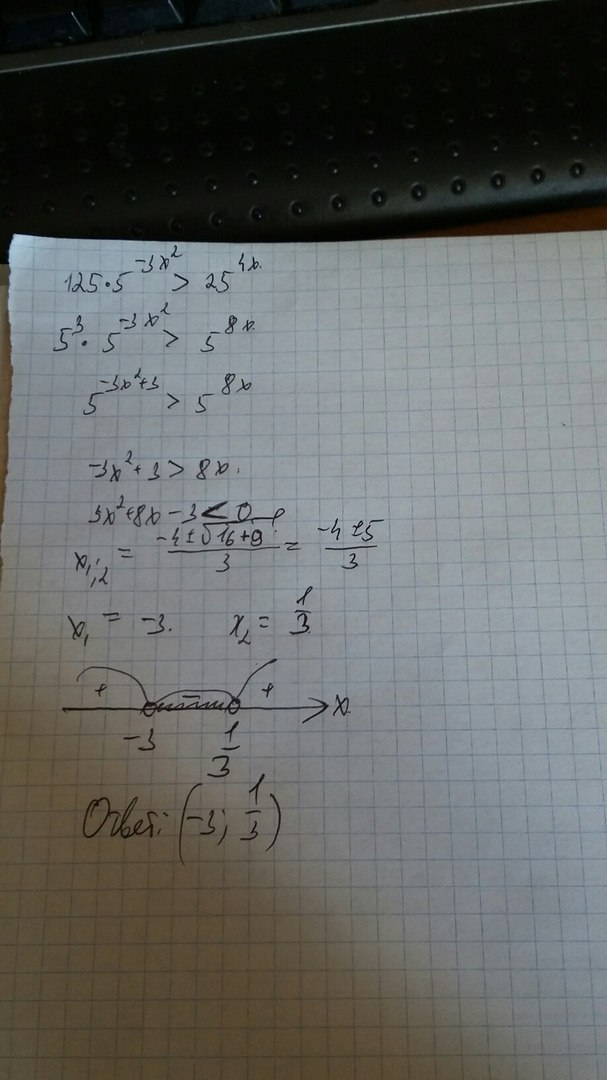 125·5^{-3x²} > 25^{4x}.
5³·5^{-3x²} > 5^{8x}.
5^{-3x²+3} > 5^{8x}
-3x²+3 > 8x.
3x²+8x-3 < 0
x₁;₂ = (-4±√(16+9))/3 = (-4±5)/3
x₁ = -3. x₂ = 1/3
+ - + x
-3 1/3
Ответ: (-3; 1/3)